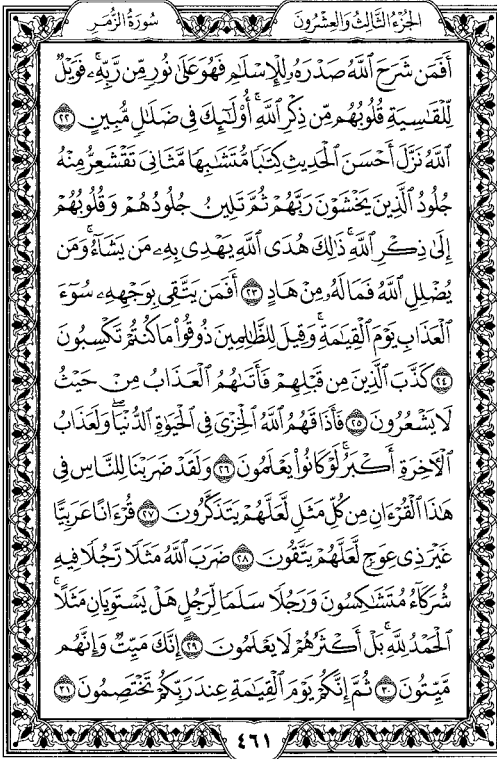 الجزء الثالث والعشرون
سورة الزمر
أَفَمَن شَرَحَ ٱللَّهُ صَدْرَهُۥ لِلْإِسْلَٰمِ فَهُوَ عَلَىٰ نُورٍ مِّن رَّبِّهِۦ ۚ فَوَيْلٌ
لِّلْقَٰسِيَةِ قُلُوبُهُم مِّن ذِكْرِ ٱللَّهِ ۚ أُو۟لَٰٓئِكَ فِى ضَلَٰلٍ مُّبِينٍ ٢٢
ٱللَّهُ نَزَّلَ أَحْسَنَ ٱلْحَدِيثِ كِتَٰبًا مُّتَشَٰبِهًا مَّثَانِىَ تَقْشَعِرُّ مِنْهُ
جُلُودُ ٱلَّذِينَ يَخْشَوْنَ رَبَّهُمْ ثُمَّ تَلِينُ جُلُودُهُمْ وَقُلُوبُهُمْ
إِلَىٰ ذِكْرِ ٱللَّهِ ۚ ذَٰلِكَ هُدَى ٱللَّهِ يَهْدِى بِهِۦ مَن يَشَآءُ ۚ وَمَن
يُضْلِلِ ٱللَّهُ فَمَا لَهُۥ مِنْ هَادٍ ٢٣ أَفَمَن يَتَّقِى بِوَجْهِهِۦ سُوٓءَ
ٱلْعَذَابِ يَوْمَ ٱلْقِيَٰمَةِ ۚ وَقِيلَ لِلظَّٰلِمِينَ ذُوقُوا۟ مَا كُنتُمْ تَكْسِبُونَ
٢٤ كَذَّبَ ٱلَّذِينَ مِن قَبْلِهِمْ فَأَتَىٰهُمُ ٱلْعَذَابُ مِنْ حَيْثُ
لَا يَشْعُرُونَ ٢٥ فَأَذَاقَهُمُ ٱللَّهُ ٱلْخِزْىَ فِى ٱلْحَيَوٰةِ ٱلدُّنْيَا ۖ وَلَعَذَابُ
ٱلْءَاخِرَةِ أَكْبَرُ ۚ لَوْ كَانُوا۟ يَعْلَمُونَ ٢٦ وَلَقَدْ ضَرَبْنَا لِلنَّاسِ فِى
هَٰذَا ٱلْقُرْءَانِ مِن كُلِّ مَثَلٍ لَّعَلَّهُمْ يَتَذَكَّرُونَ ٢٧ قُرْءَانًا عَرَبِيًّا
غَيْرَ ذِى عِوَجٍ لَّعَلَّهُمْ يَتَّقُونَ ٢٨ ضَرَبَ ٱللَّهُ مَثَلًا رَّجُلًا فِيهِ
شُرَكَآءُ مُتَشَٰكِسُونَ وَرَجُلًا سَلَمًا لِّرَجُلٍ هَلْ يَسْتَوِيَانِ مَثَلًا ۚ
ٱلْحَمْدُ لِلَّهِ ۚ بَلْ أَكْثَرُهُمْ لَا يَعْلَمُونَ ٢٩ إِنَّكَ مَيِّتٌ وَإِنَّهُم
مَّيِّتُونَ ٣٠ ثُمَّ إِنَّكُمْ يَوْمَ ٱلْقِيَٰمَةِ عِندَ رَبِّكُمْ تَخْتَصِمُونَ ٣١
٤٦١